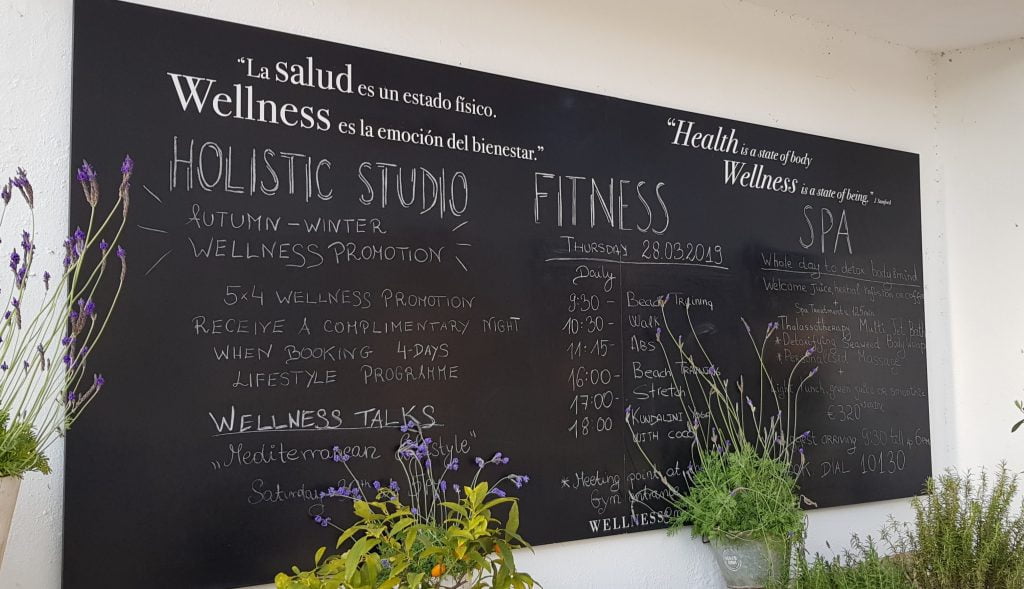 “La salud es un estado físico.
Wellness es la emoción del bienestar.”
HOLISTIC STUDIO
AUTUMN - WINTER
WELLNESS PROMOTION
5x4 WELLNESS PROMOTION
RECEIVE A COMPLIMENTARY NIGHT
WHEN BOOKING 4-DAYS
LIFESTYLE PROGRAMME
WELLNESS TALKS
„Mediterranean
Saturday
FITNESS
THURSDAY 28.03.2019
Daily
9:30 - Beach Training
10:30 - Walk
11:15 - Abs
16:00 - Beach Training
17:00 - Stretch
18:00 KUNDALINI YOGA
WITH COCO
* Meeting point at
Gym entrance
WELLNESS
“Health is a state of body
Wellness is a state of being.” J Stanford
SPA
Whole day to detox body&mind
Welcome Juice, herbal infusion or coffee
+
Spa Treatments 125min
* Thalassotherapy Multi Jet Bath
* Detoxifying Seaweed Body wrap
* Personalised Massage
+
Light lunch, green juice or smoothie
€320
arriving 9:30 till 6pm
DIAL 10130